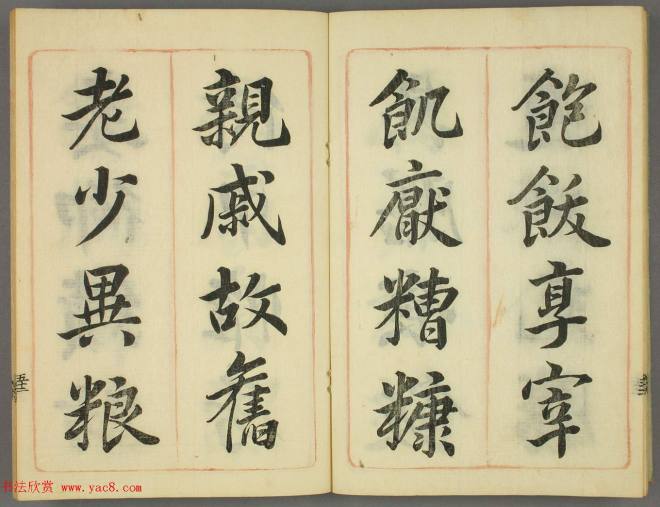 飽飫享宰
飢厭糟糠
親戚故舊
老少異粮
书法欣赏 www.yac8.com